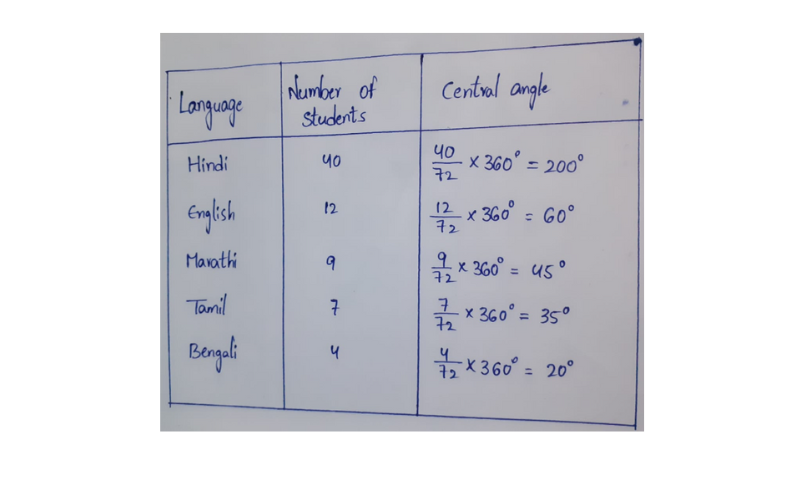 Language Number of Students Central angle
Hindi 40 40/72 × 360° = 200°
English 12 12/72 × 360° = 60°
Marathi 9 9/72 × 360° = 45°
Tamil 7 7/72 × 360° = 35°
Bengali 4 4/72 × 360° = 20°